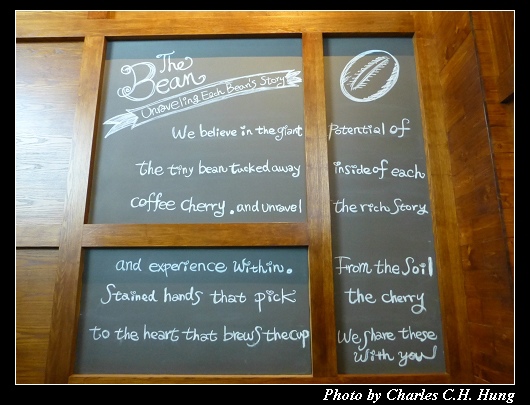 The
Bean
Unraveling Each Bean's Story
We believe in the giant potential of
the tiny bean tucked away inside of each
coffee cherry. and unravel the rich story
and experience within. From the Soil
Stained hands that pick the cherry
to the heart that brews the cup We share these
with you
Photo by Charles C.H. Hung